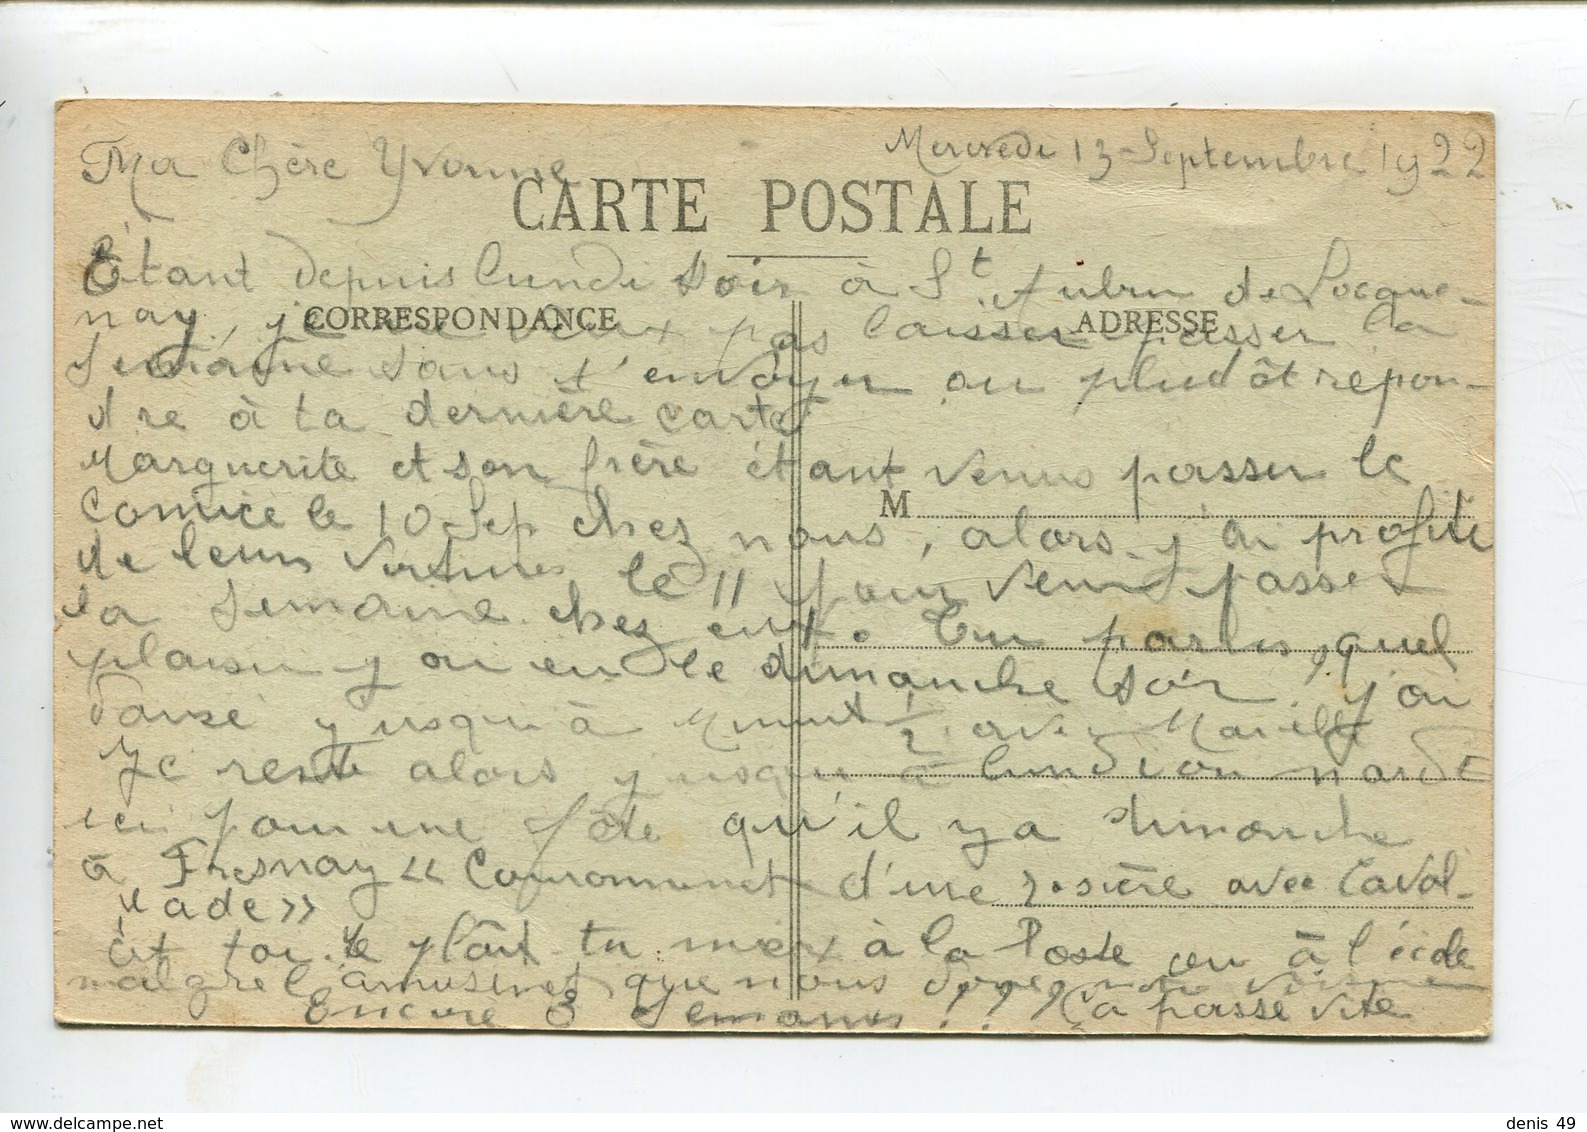 Mercredi 13 Septembre 1922
Ma Chère Yvonne
CARTE POSTALE
Étant depuis lundi soir à St Aubin de Locque-
nay, je ne veux pas laisser passer la
CORRESPONDANCE
ADRESSE
semaine sans t'envoyer ou pludôt repon-
dre à ta dernière carte
Marguerite et son frère étant venus passer le
Comice le 10 Sep chez nous, alors j'ai profité
M
de leurs voitures le 11 pour venir passer
la semaine chez eux. Tu parles, quel
plaisir j'ai eu le dimanche soir, j'ai
dansé jusqu'à Minuit ½ avec
Je reste alors jusqu'à lundi ou mardi
ici pour une fête qu'il y a dimanche
à Fresnay « Couronnement d'une rosière avec Caval-
cade »
Et toi te plaît tu mieux à la Poste ou à l'école
malgré l'amusement que nous
Encore 3 semaines !! ça passe vite
www.delcampe.net
denis 49